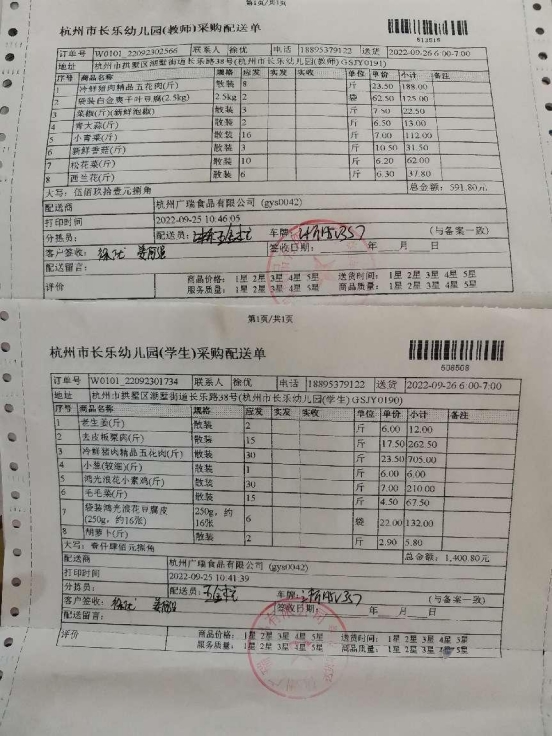 第1页/共1页
杭州市长乐幼儿园(教师)采购配送单
订单号 W0101_22092302566 联系人 徐优 电话 18895379122 送货 2022-09-26 6:00-7:00
地址 杭州市拱墅区湖墅街道长乐路38号(杭州市长乐幼儿园(教师) GSJY0191)
序号 商品名称 规格 应发 实发 实收 单位 单价 小计 备注
1 冷鲜猪肉精品五花肉(斤) 散装 8 斤 23.50 188.00
2 袋装白金爽千叶豆腐(2.5kg) 2.5kg 2 袋 62.50 125.00
3 菜椒(斤)(新鲜泡椒) 散装 3 斤 7.50 22.50
4 青大蒜(斤) 散装 2 斤 6.50 13.00
5 小青菜(斤) 散装 16 斤 7.00 112.00
6 新鲜香菇(斤) 散装 3 斤 10.50 31.50
7 松花菜(斤) 散装 10 斤 6.20 62.00
8 西兰花(斤) 散装 6 斤 6.30 37.80
大写: 伍佰玖拾壹元捌角 总金额: 591.80元
配送商 杭州广瑞食品有限公司 (gys0042)
打印时间 2022-09-25 10:46:05
分拣员: 配送员: 车牌: (与备案一致)
客户签收: 徐优 签收日期: 年 月 日
配送留言:
评价 商品价格: 1星 2星 3星 4星 5星 送货时间: 1星 2星 3星 4星 5星
服务质量: 1星 2星 3星 4星 5星 商品质量: 1星 2星 3星 4星 5星
第1页/共1页
杭州市长乐幼儿园(学生)采购配送单
608508
订单号 W0101_22092301734 联系人 徐优 电话 18895379122 送货 2022-09-26 6:00-7:00
地址 杭州市拱墅区湖墅街道长乐路38号(杭州市长乐幼儿园(学生) GSJY0190)
序号 商品名称 规格 应发 实发 实收 单位 单价 小计 备注
1 老生姜(斤) 散装 2 斤 6.00 12.00
2 去皮板栗肉(斤) 散装 15 斤 17.50 262.50
3 冷鲜猪肉精品五花肉(斤) 散装 30 斤 23.50 705.00
4 小葱(较细)(斤) 散装 1 斤 6.00 6.00
5 鸿光浪花小素鸡(斤) 散装 30 斤 7.00 210.00
6 毛毛菜(斤) 散装 15 斤 4.50 67.50
7 袋装鸿光浪花豆腐皮(250g, 约16张) 250g, 约16张 6 袋 22.00 132.00
8 胡萝卜(斤) 散装 2 斤 2.90 5.80
大写: 壹仟肆佰元捌角 总金额: 1,400.80元
配送商 杭州广瑞食品有限公司 (gys0042)
打印时间 2022-09-25 10:41:39
分拣员: 配送员: 车牌: (与备案一致)
客户签收: 徐优 签收日期: 年 月 日
配送留言:
评价 商品价格: 1星 2星 3星 4星 5星 送货时间: 1星 2星 3星 4星 5星
服务质量: 1星 2星 3星 4星 5星 商品质量: 1星 2星 3星 4星 5星